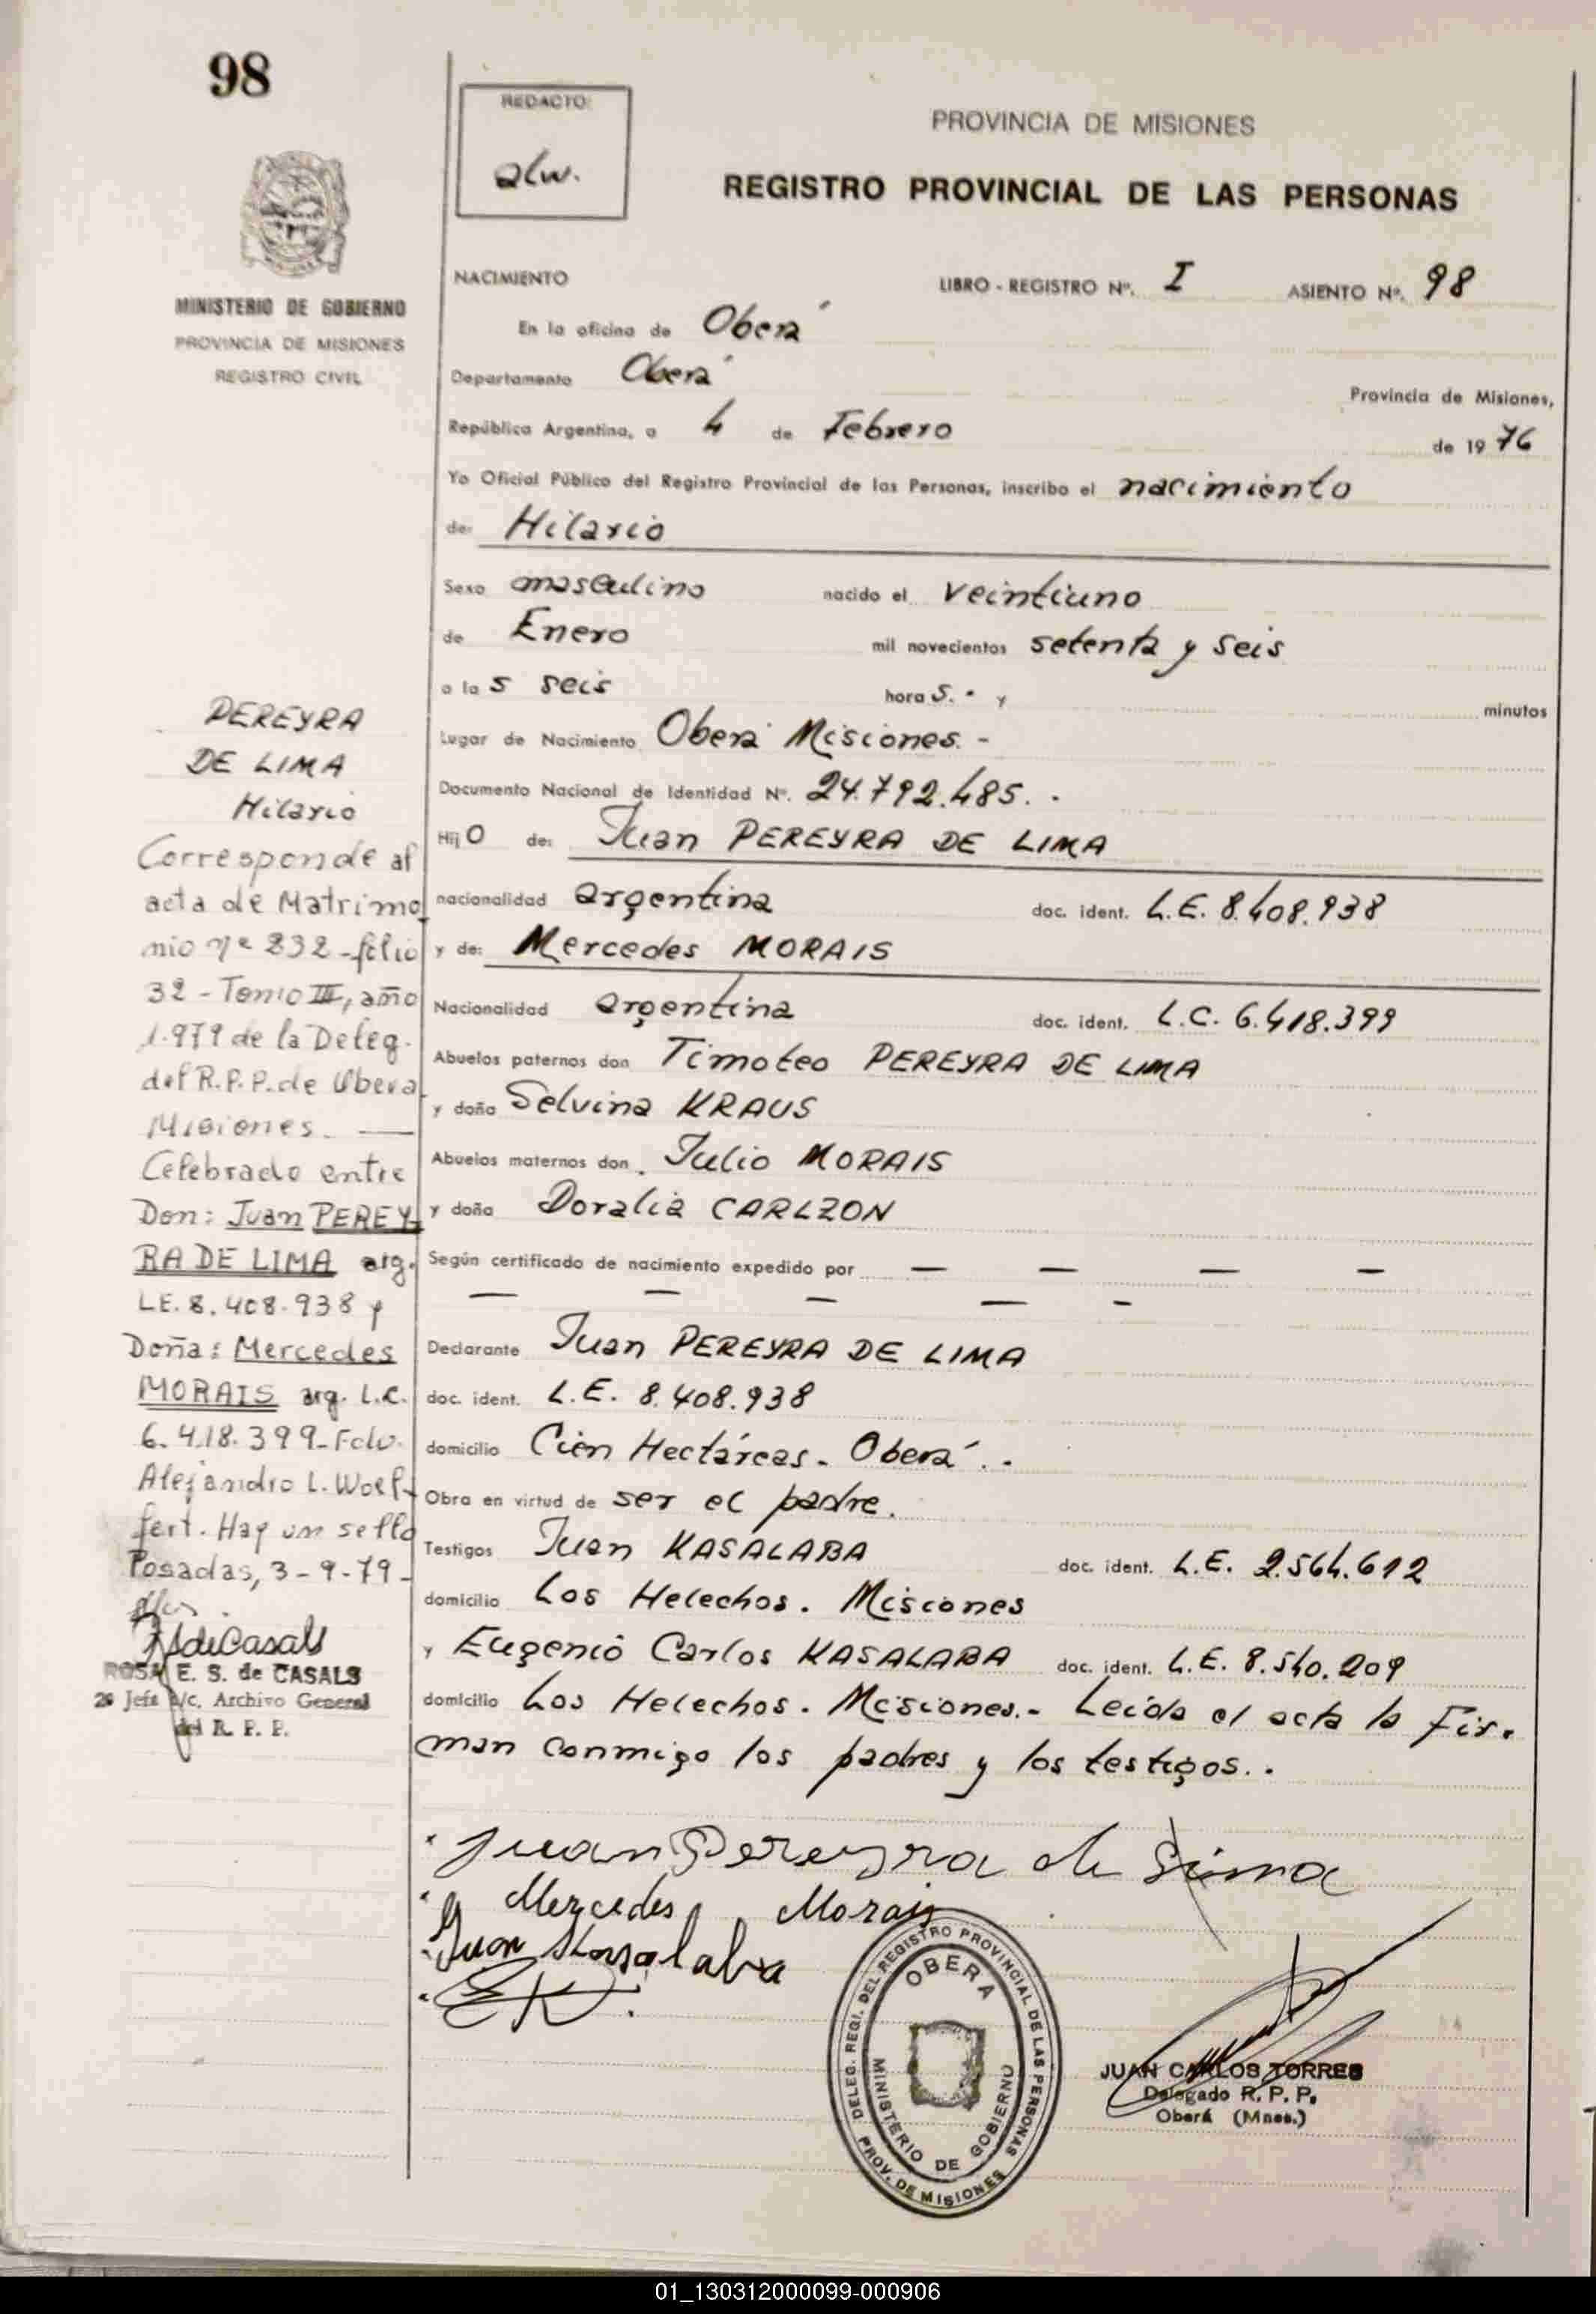 98
REDACTO:
alw.
PROVINCIA DE MISIONES
REGISTRO PROVINCIAL DE LAS PERSONAS
MINISTERIO DE GOBIERNO
PROVINCIA DE MISIONES
REGISTRO CIVIL
NACIMIENTO LIBRO - REGISTRO Nº. I ASIENTO Nº. 98
En la oficina de Oberá
Departamento Oberá Provincia de Misiones,
República Argentina, a 4 de Febrero de 19 76
Yo Oficial Público del Registro Provincial de las Personas, inscribo el nacimiento
de: Hilario
Sexo masculino nacido el veintiuno
de Enero mil novecientos setenta y seis
a la s seis hora s. y minutos
Lugar de Nacimiento Oberá Misiones. -
Documento Nacional de Identidad Nº. 24.792.485. .
Hij o de: Juan PEREYRA DE LIMA
nacionalidad argentina doc. ident. L.E. 8.408.938
y de: Mercedes MORAIS
Nacionalidad argentina doc. ident. L.C. 6.418.399
Abuelos paternos don Timoteo PEREYRA DE LIMA
y doña Selvina KRAUS
Abuelos maternos don Julio MORAIS
y doña Doralia CARLZON
Según certificado de nacimiento expedido por — — — —
— — — — -
Declarante Juan PEREYRA DE LIMA
doc. ident. L.E. 8.408.938
domicilio Cien Hectáreas - Oberá . -
Obra en virtud de ser el padre.
Testigos Juan KASALABA doc. ident. L.E. 2.564.612
domicilio Los Helechos. Misiones
y Eugenio Carlos KASALABA doc. ident. L.E. 8.540.209
domicilio Los Helechos. Misiones.- Leída el acta la Fir-
man conmigo los padres y los testigos. .
PEREYRA
DE LIMA
Hilario
Corresponde al
acta de Matrimo
nio nº 232 - folio
32 - Tomo III, año
1.979 de la Deleg.
del R.P.P. de Oberá
Misiones. —
Celebrado entre
Don: Juan PEREY-
RA DE LIMA arg.
LE. 8.408.938 y
Doña: Mercedes
MORAIS arg. L.C.
6.418.399 - Fdo.
Alejandro L. Woelf-
fert. Hay un sello
Posadas, 3-9-79-
ROSA E. S. de CASALS
2º Jefa a/c. Archivo General
del R. P. P.
Juan Pereyra de Lima
Mercedes Morais
Juan Kasalaba
DELEG. REGI. DEL REGISTRO PROVINCIAL DE LAS PERSONAS
OBERA
MINISTERIO DE GOBIERNO
PROV. DE MISIONES
JUAN CARLOS TORRES
Delegado R. P. P.
Oberá (Mnes.)
01_130312000099-000906